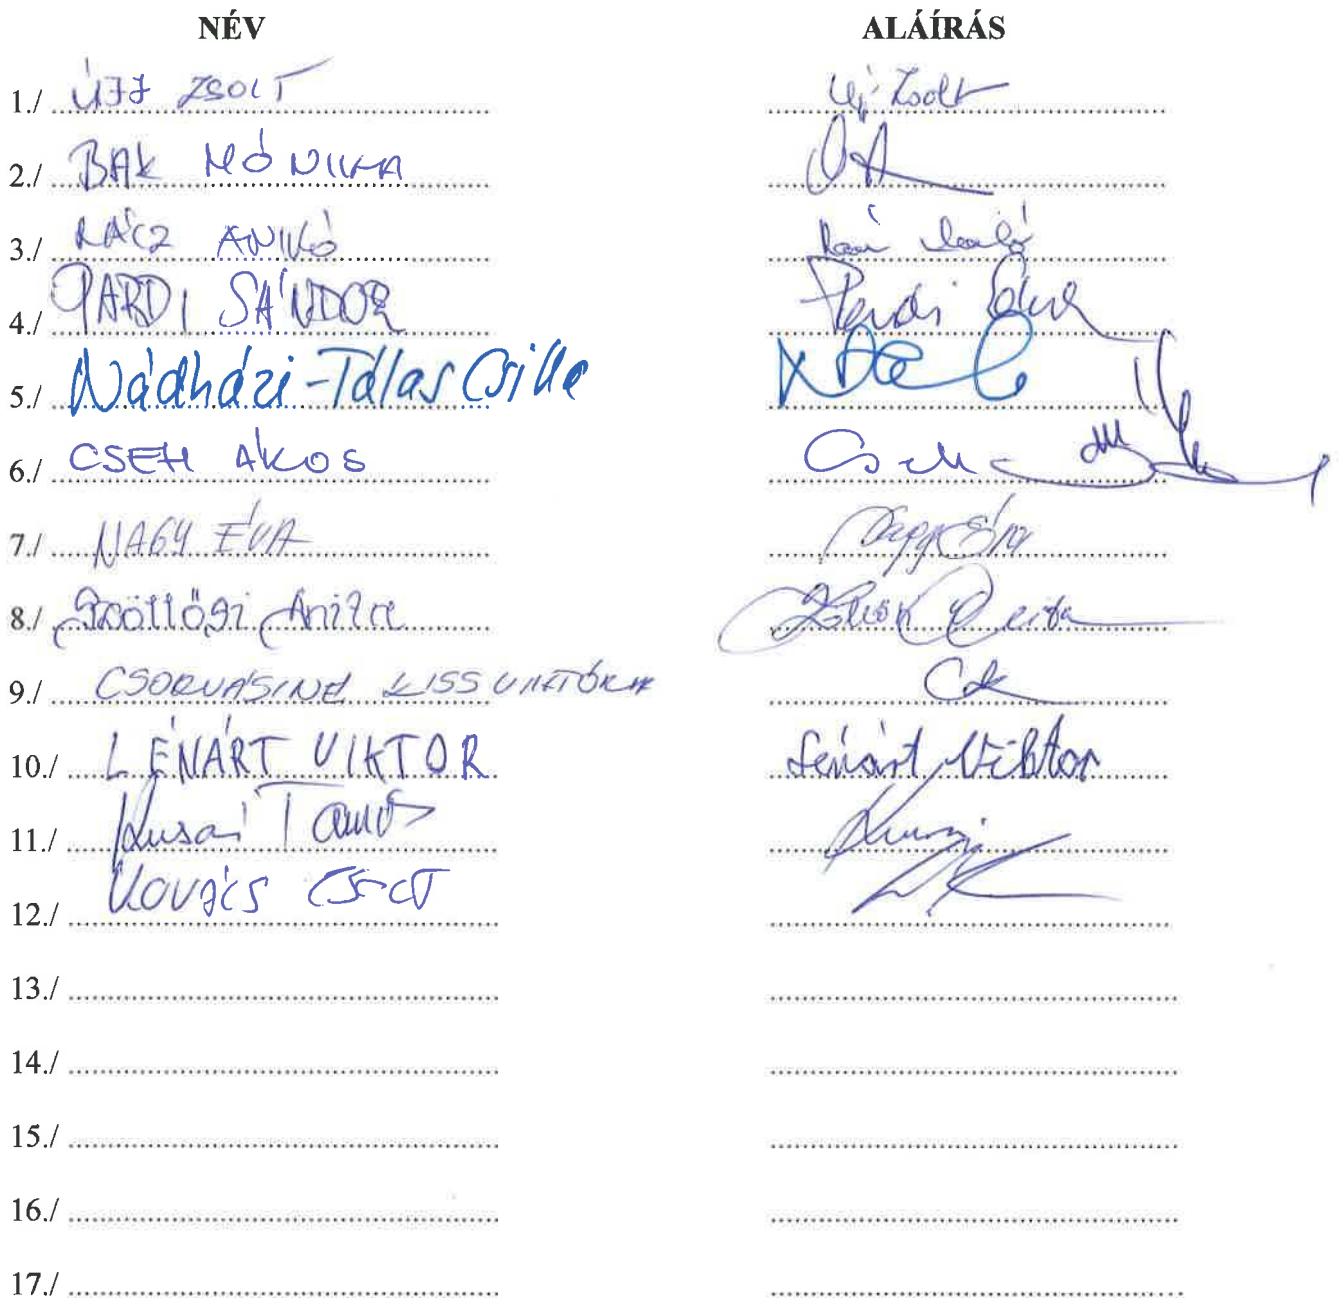 NÉV ALÁÍRÁS
1./ ÚJJ ZSOLT Új Zsolt
2./ BAK MÓNIKA
3./ RÁCZ ANIKÓ
4./ PARDI SÁNDOR Pardi
5./ Nádházi-Tálas Csilla
6./ CSEH ÁKOS Cseh
7./ NAGY ÉVA Nagy Éva
8./ Szöllősi Anita Anita
9./ CSORVÁSINÉ KISS VIKTÓRIA
10./ LÉNÁRT VIKTOR Lénárt Viktor
11./ Kusai Tamás
12./ Kovács
13./
14./
15./
16./
17./